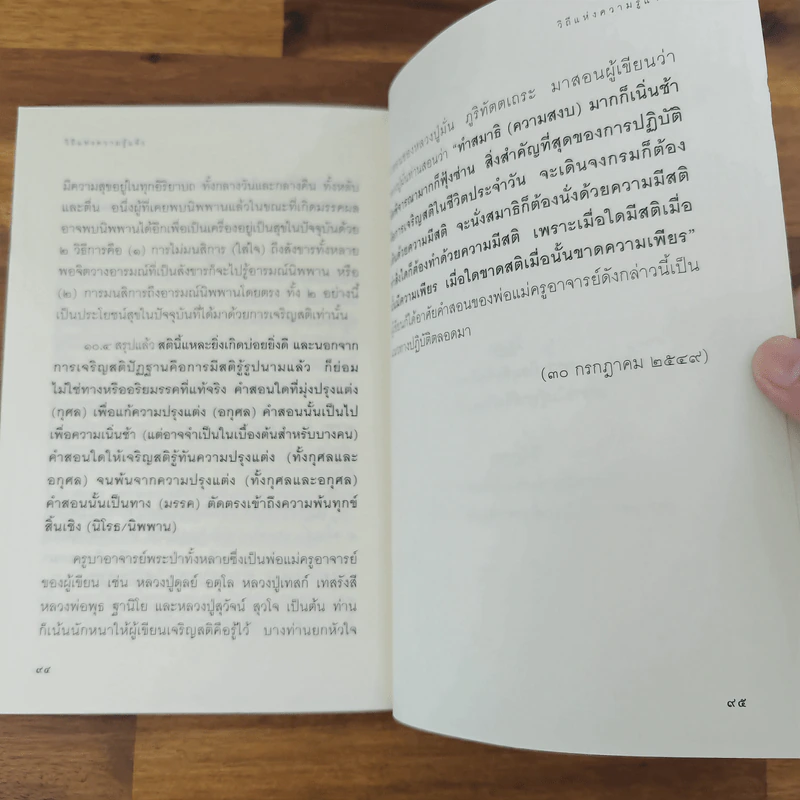 วิถีแห่งความรู้แจ้ง
มีความสุขอยู่ในทุกอิริยาบถ ทั้งกลางวันและกลางคืน ทั้งหลับ
และตื่น อนึ่งผู้ที่เคยพบนิพพานแล้วในขณะที่เกิดมรรคผล
อาจพบนิพพานได้อีกเพื่อเป็นเครื่องอยู่เป็นสุขในปัจจุบันด้วย
๒ วิธีการคือ (๑) การไม่มนสิการ (ใส่ใจ) ถึงสังขารทั้งหลาย
พอจิตวางอารมณ์ที่เป็นสังขารก็จะไปรู้อารมณ์นิพพาน หรือ
(๒) การมนสิการถึงอารมณ์นิพพานโดยตรง ทั้ง ๒ อย่างนี้
เป็นประโยชน์สุขในปัจจุบันที่ได้มาด้วยการเจริญสติเท่านั้น
๑๐.๕ สรุปแล้ว สตินี้แหละยิ่งเกิดบ่อยยิ่งดี และนอกจาก
การเจริญสติปัฏฐานคือการมีสติรู้รูปนามแล้ว ก็ย่อม
ไม่ใช่ทางหรืออริยมรรคที่แท้จริง คำสอนใดที่มุ่งปรุงแต่ง
(กุศล) เพื่อแก้ความปรุงแต่ง (อกุศล) คำสอนนั้นเป็นไป
เพื่อความเนิ่นช้า (แต่อาจจำเป็นในเบื้องต้นสำหรับบางคน)
คำสอนใดให้เจริญสติรู้ทันความปรุงแต่ง (ทั้งกุศลและ
อกุศล) จนพ้นจากความปรุงแต่ง (ทั้งกุศลและอกุศล)
คำสอนนั้นเป็นทาง (มรรค) ตัดตรงเข้าถึงความพ้นทุกข์
สิ้นเชิง (นิโรธ/นิพพาน)
ครูบาอาจารย์พระป่าทั้งหลายซึ่งเป็นพ่อแม่ครูอาจารย์
ของผู้เขียน เช่น หลวงปู่ดูลย์ อตุโล หลวงปู่เทสก์ เทสรังสี
หลวงพ่อพุธ ฐานิโย และหลวงปู่สุวัจน์ สุวโจ เป็นต้น ท่าน
ก็เน้นนักหนาให้ผู้เขียนเจริญสติคือรู้ไว้ บางท่านยกหัวใจ
๙๔
วิถีแห่งความรู้
หลวงปู่มั่น ภูริทัตตเถระ มาสอนผู้เขียนว่า
ท่านสอนว่า “ทำสมาธิ (ความสงบ) มากก็เนิ่นช้า
พิจารณามากก็ฟุ้งซ่าน สิ่งสำคัญที่สุดของการปฏิบัติ
การเจริญสติในชีวิตประจำวัน จะเดินจงกรมก็ต้อง
ด้วยความมีสติ จะนั่งสมาธิก็ต้องนั่งด้วยความมีสติ
ก็ต้องทำด้วยความมีสติ เพราะเมื่อใดมีสติเมื่อ
มีความเพียร เมื่อใดขาดสติเมื่อนั้นขาดความเพียร”
ก็ได้อาศัยคำสอนของพ่อแม่ครูอาจารย์ดังกล่าวนี้เป็น
ทางปฏิบัติตลอดมา
(๓๐ กรกฎาคม ๒๕๔๙)
๙๕